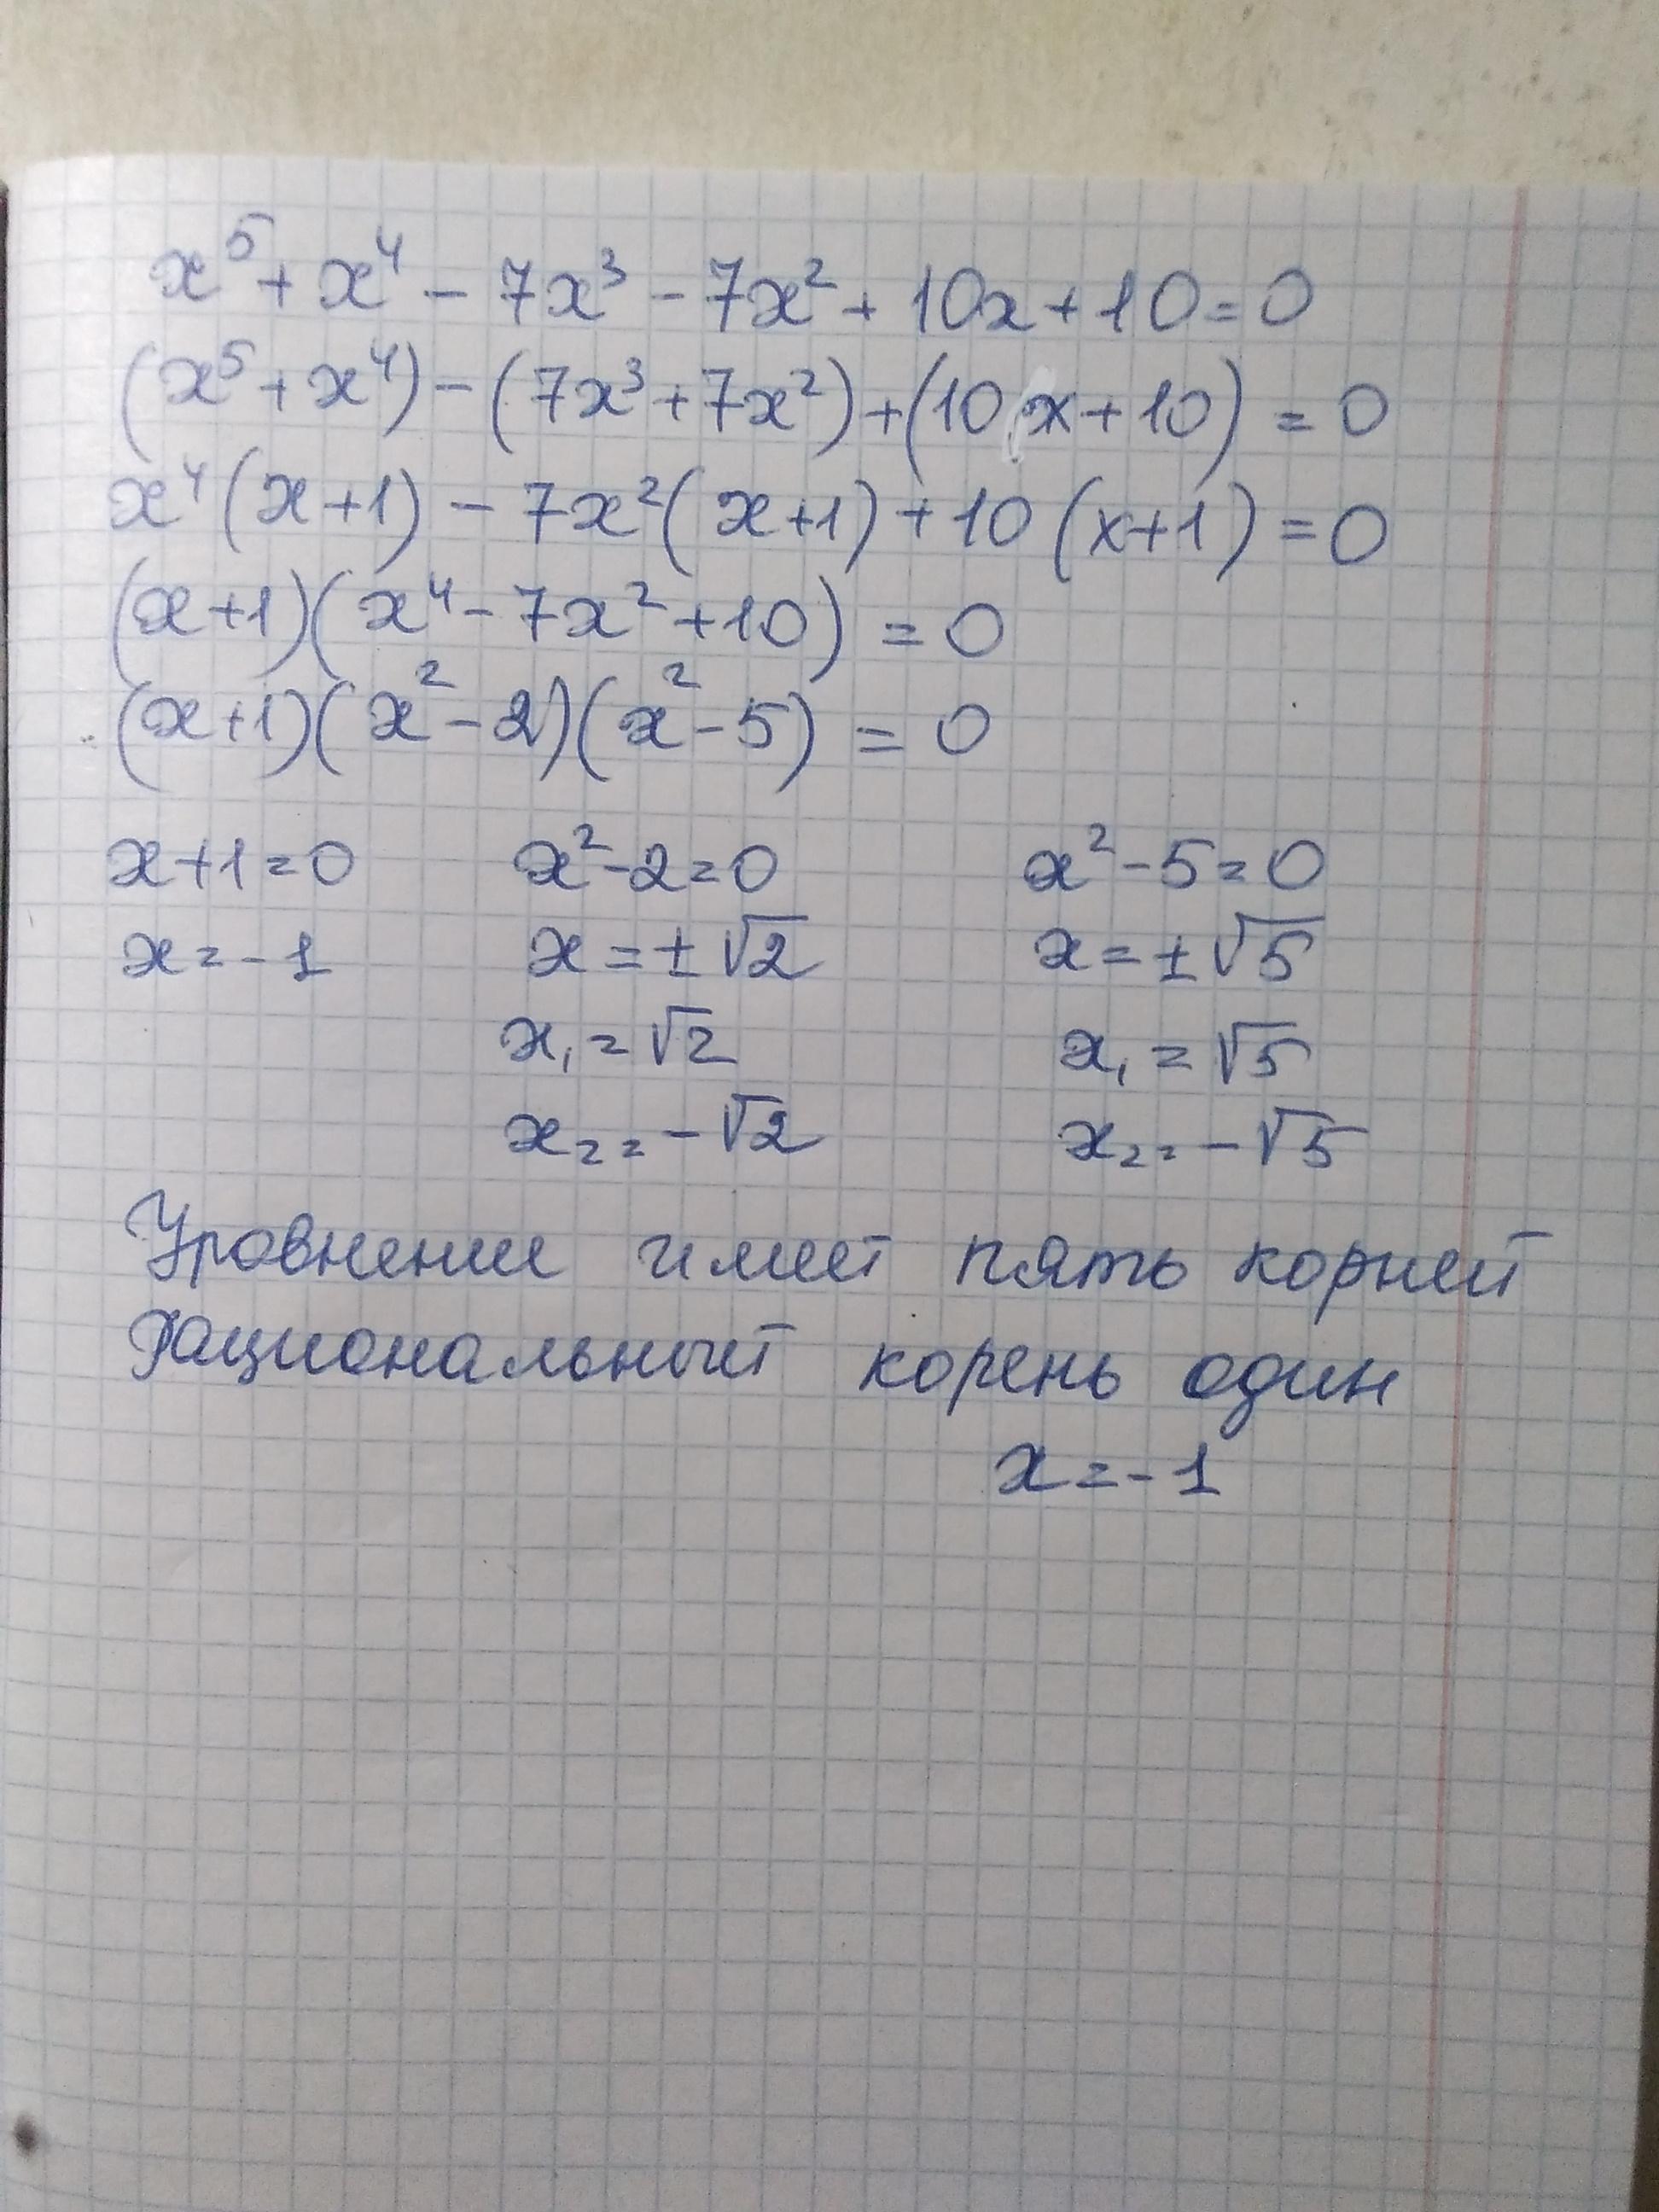 x⁵ + x⁴ - 7x³ - 7x² + 10x + 10 = 0
(x⁵ + x⁴) - (7x³ + 7x²) + (10x + 10) = 0
x⁴(x+1) - 7x²(x+1) + 10(x+1) = 0
(x+1)(x⁴ - 7x² + 10) = 0
(x+1)(x² - 2)(x² - 5) = 0
x+1=0 x²-2=0 x²-5=0
x=-1 x=±√2 x=±√5
x₁=√2 x₁=√5
x₂=-√2 x₂=-√5
Уровнение имеет пять корней
Рациональный корень один
x=-1